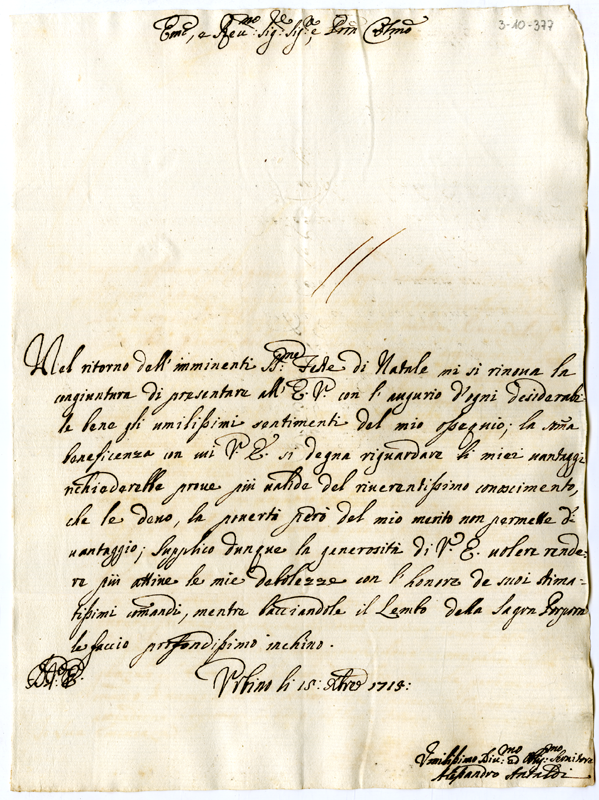 3-10-377
Em.^o, e Rev.^mo Sig.^re Sig.^re, e Pron Col.^mo
Nel ritorno dell'imminenti SS.^me Feste di Natale mi si rinova la
congiuntura di presentare all'E. V.^a con l'augurio d'ogni desiderabi-
le bene gli umilissimi sentimenti del mio ossequio; la som̃a
beneficenza con cui V.^a E. si degna riguardare li miei vantaggi
richiederebbe prove più valide del riverentissimo conoscimento,
che le devo, la povertà però del mio merito non permette di
vantaggio; supplico dunque la generosità di V.^a E. volere rende-
re più attive le mie debolezze con l'honore de suoi stima-
tissimi comandi, mentre bacciandole il Lembo della Sagra Porpora
le faccio profondissimo inchino.
D. V. E.
Urbino li 15: Xbre 1713:
Umilissimo Div.^mo ed Obl.^mo Servitore
Alessandro Antaldi